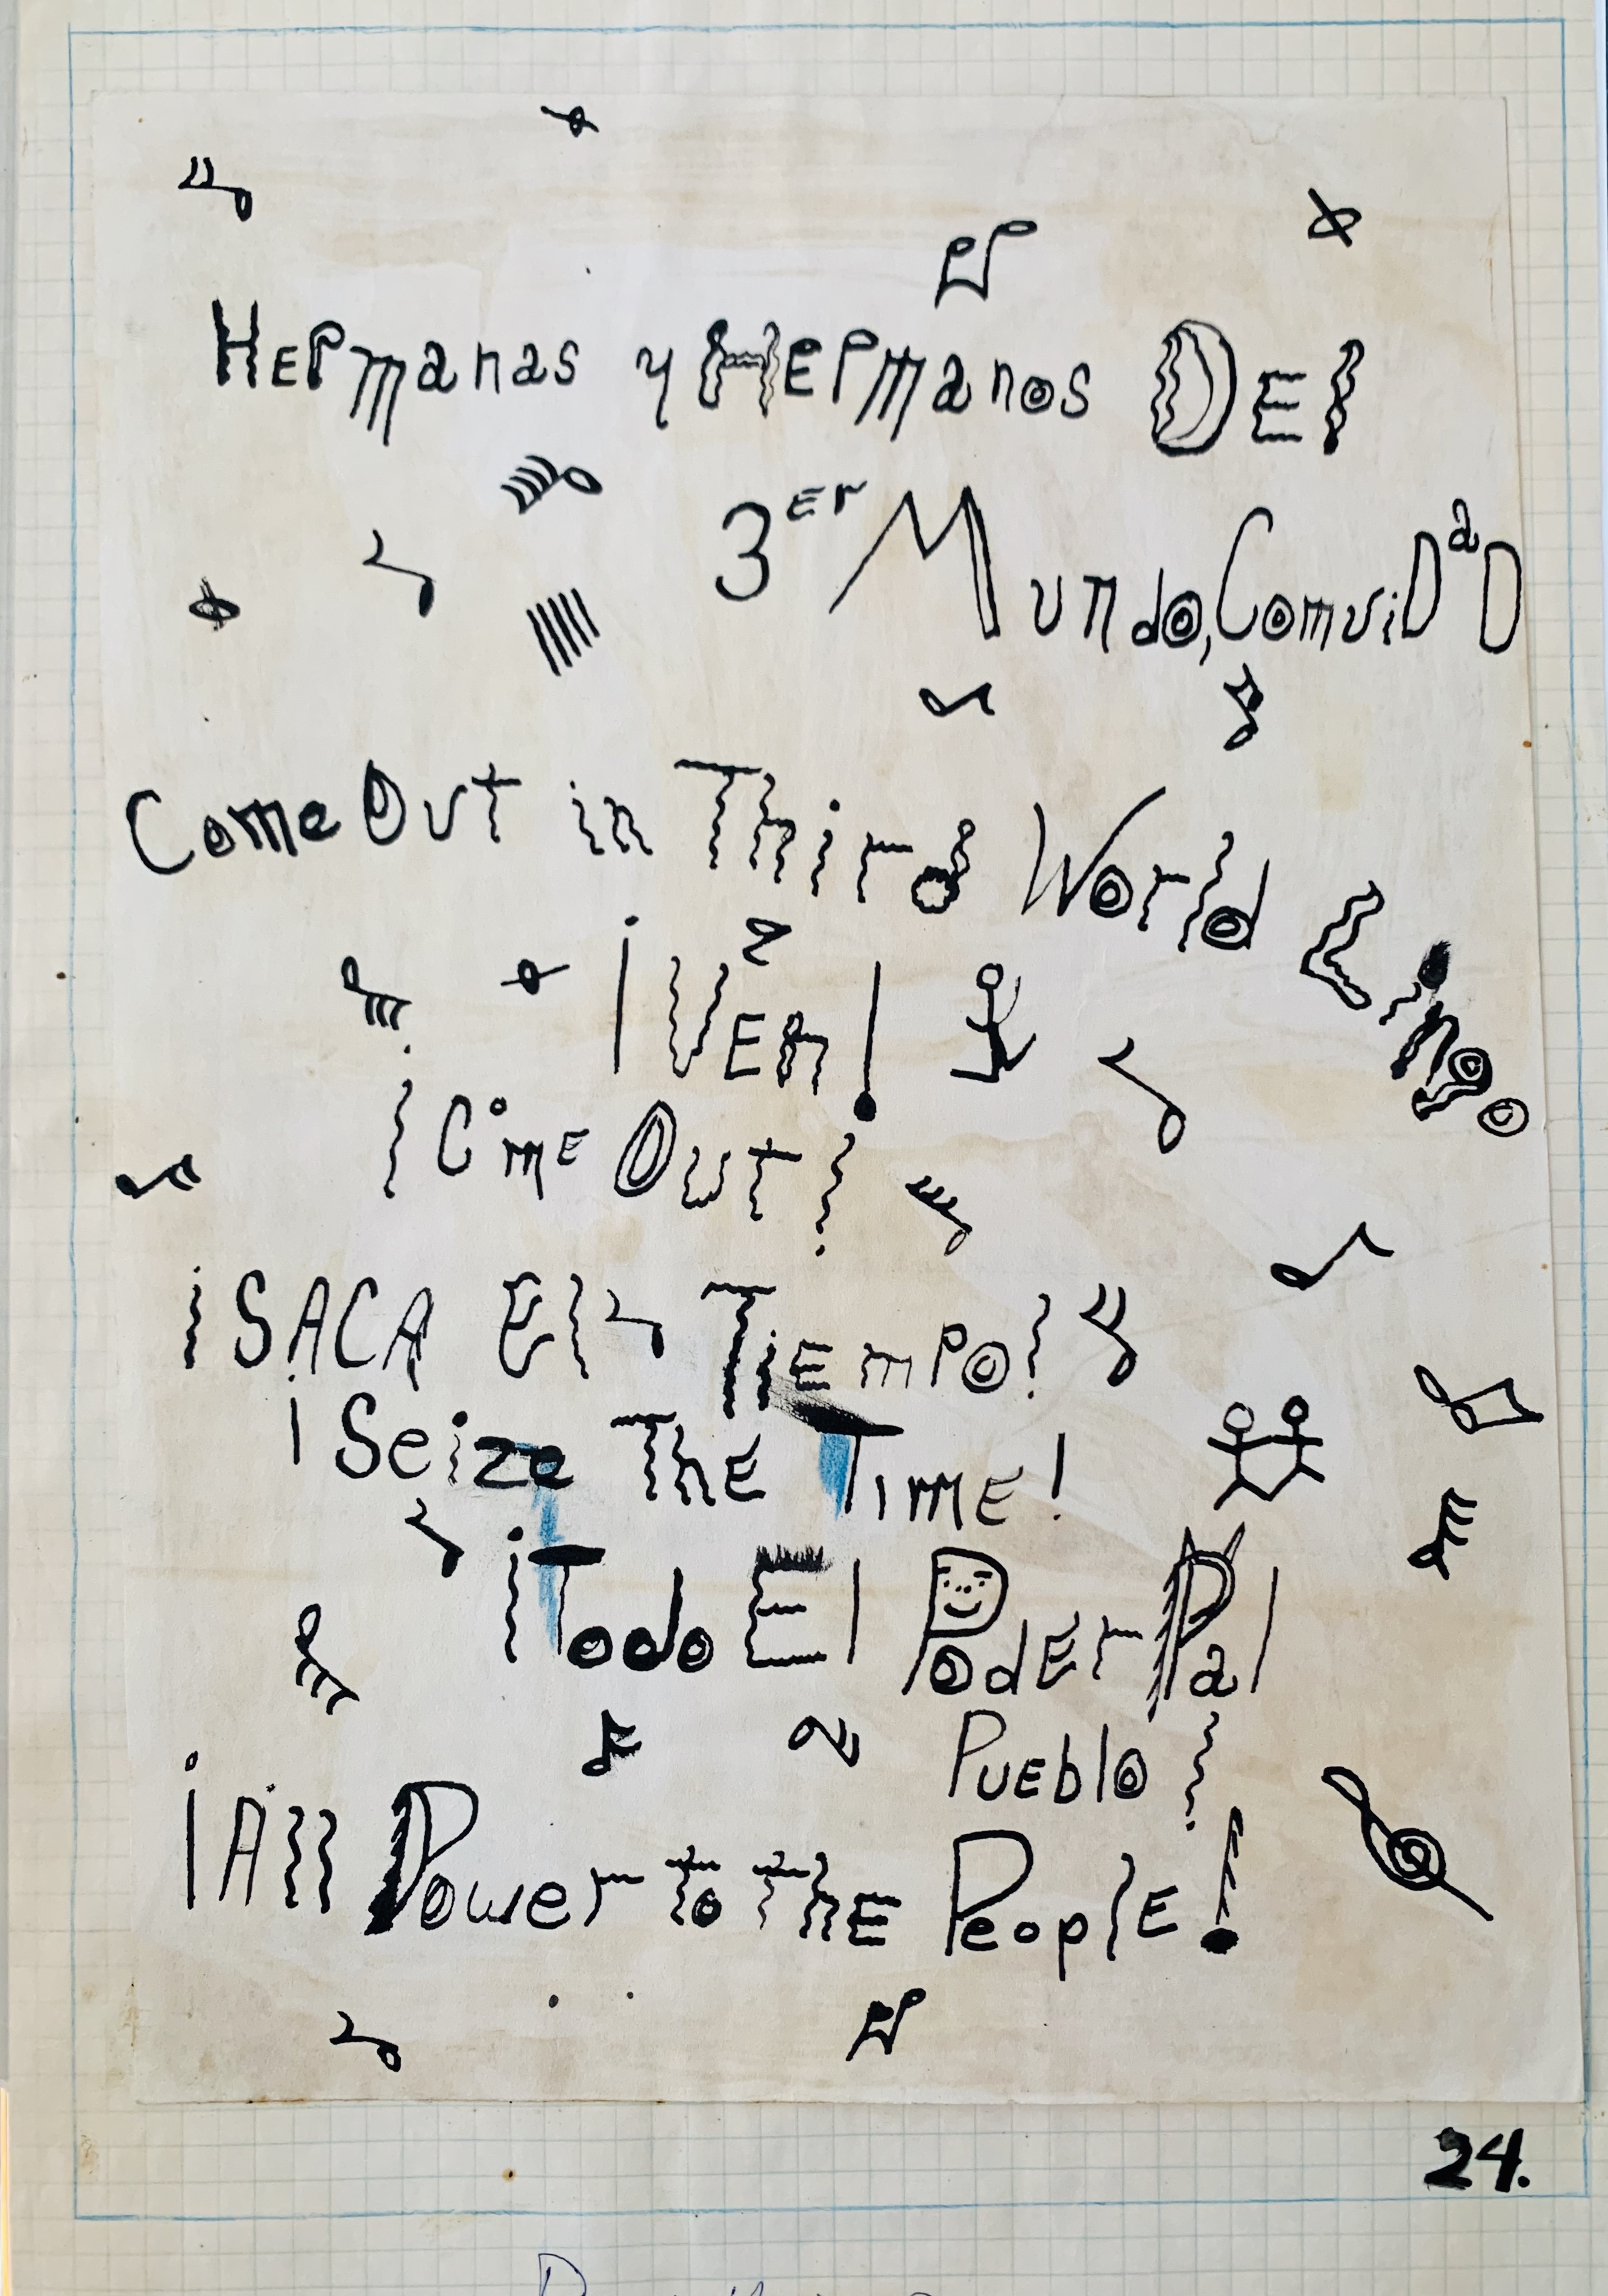 Hermanas y Hermanos Del
3er Mundo, ComuiDaD
Come Out in Third World Lingo
¡Ven!
¡Come Out!
¡SACA El Tiempo!
¡Seize The Time!
¡Todo El Poder Pal
Pueblo!
¡All Power to The People!
24.